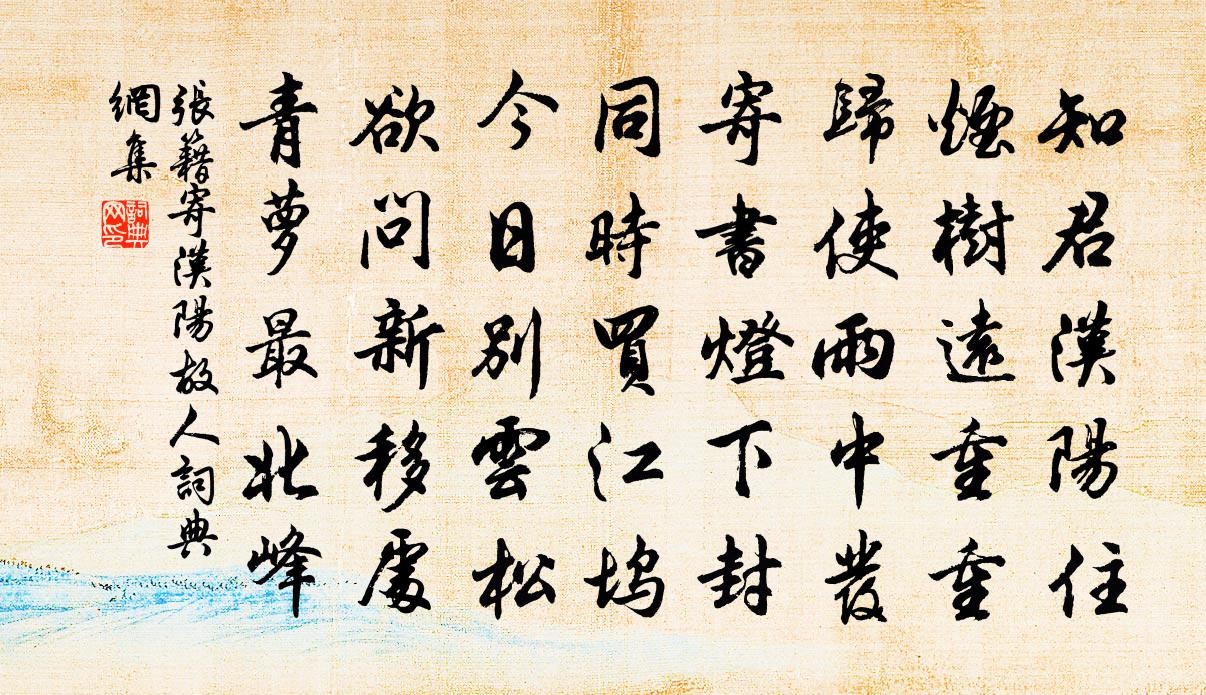 知君漢陽住
煙樹遠重重
歸使雨中發
寄書燈下封
同時買江塢
今日別雲松
欲問新移處
青夢最北峰
張籍寄漢陽故人詞典
網集
詞典
网印